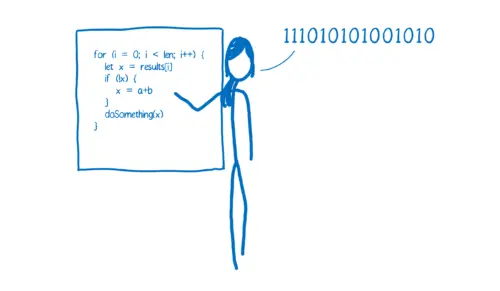 for (i = 0; i < len; i++) {
let x = results[i]
if (!x) {
x = a+b
}
doSomething(x)
}
111010101001010